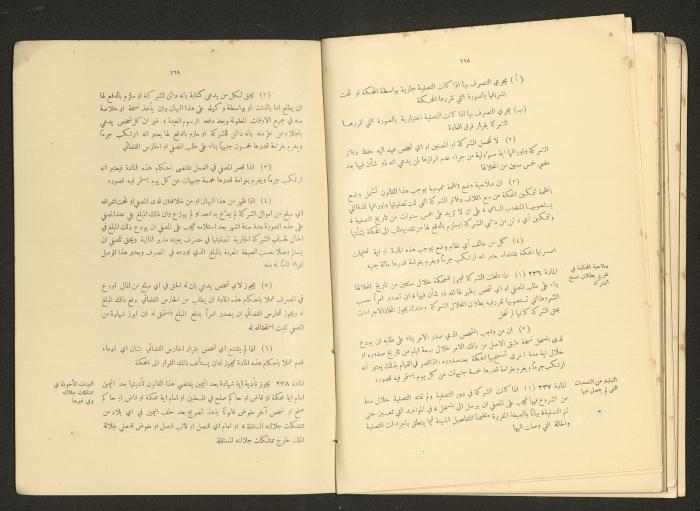 ١٦٨
(أ) يجري التصرف بها اذا كانت التصفية جارية بواسطة المحكمة او تحت
اشرافها بالصورة التي تقررها المحكمة
(ب) يجري التصرف بها اذا كانت التصفية اختيارية بالصورة التي تقررها
الشركة بقرار فوق العادة
(٢) لا تتحمل الشركة او المصفين او اي شخص عهد اليه حفظ دفاتر
الشركة واوراقها اية مسؤولية من جراء عدم ابرازها لمن يدعي انه ذو شأن فيها بعد
مضي خمس سنين من انحلالها
(٣) ان صلاحية وضع انظمة عمومية بموجب هذا القانون تشمل وضع
انظمة لتمكين المحكمة من منع اتلاف دفاتر الشركة التي تمت تصفيتها واوراقها للمدة التي
يستصوبها المندوب السامي على ان لا تزيد على خمس سنوات من تاريخ التصفية
ولتمكين أي دائن من دائني الشركة او ملزم بالدفع لها من تقديم طلب الى المحكمة بشأنها
(٤) كل من خالف أي نظام وضع بموجب هذه المادة او اية تعليمات
اصدرتها المحكمة بمقتضاه يعتبر انه ارتكب جرماً ويغرم بغرامة قدرها مائة جنيه
صلاحية المحكمة في
تقرير بطلان فسخ
الشركة
المادة ٢٣٦ (١) اذا انحلت الشركة فيجوز للمحكمة خلال سنتين من تاريخ انحلالها
بناء على طلب المصفي او اي شخص يظهر لها انه ذو شأن فيها ان تصدر امراً حسب
الشروط التي تستصوبها تقرر فيه بطلان انحلال الشركة وعندئذ يجوز اتخاذ الاجراءات
بحق الشركة كانها لم تنحل
(٢) ان من واجب الشخص الذي صدر الامر بناء على طلبه ان يودع
لدى المسجل نسخة طبق الاصل من ذلك الامر خلال سبعة ايام من تاريخ صدوره او
خلال اية مدة اخرى تسمح بها المحكمة بعد صدوره، واذا قصر في القيام بذلك يعتبر أنه
ارتكب جرماً ويغرم بغرامة قدرها خمسة جنيهات عن كل يوم يستمر فيه قصوره
المادة ٢٣٧ (١) اذا كانت الشركة في دور التصفية ولم تنته التصفية خلال سنة
من الشروع فيها فيجب على المصفي ان يرسل الى المسجل في المواعيد التي تعين حتى
تتم التصفية بياناً بالصيغة المقررة متضمناً التفاصيل المبينة فيما يتعلق باجراءات التصفية
والحالة التي وصلت اليها
١٦٩
(٢) يحق لكل من يدعي كتابة بانه دائن للشركة او ملزم بالدفع لها
ان يطلع اما بالذات او بواسطة وكيله على هذا البيان وان يأخذ نسخة او خلاصة
عنه في جميع الاوقات المعقولة وبعد دفعه الرسوم المعينة غير ان كل شخص يدعي
باطلاً وعن علم منه بانه دائن للشركة او ملزم بالدفع لها يعتبر انه ارتكب جرماً
ويغرم بغرامة قدرها خمسون جنيهاً بناء على طلب المصفي او الحارس القضائي
(٣) اذا قصر المصفي في العمل بمقتضى احكام هذه المادة فيعتبر انه
ارتكب جرماً ويغرم بغرامة قدرها خمسة جنيهات عن كل يوم يستمر فيه قصوره
(٤) اذا ظهر من هذا البيان او من خلافه ان لدى المصفي او تحت اشرافه
اي مبلغ من اموال الشركة لم يدع به احد او لم يوزع وان ذلك المبلغ بقي عند المصفي
على هذه الصورة مدة ستة اشهر بعد استلامه فيجب على المصفي ان يودع ذلك المبلغ في
الحال لحساب الشركة الجارية تصفيتها في مصرف يعينه مدير المالية ويحق للمصفي ان
يستلم وصلاً حسب الصيغة المعينة بالمبلغ الذي اودعه في المصرف ويعتبر هذا الوصل
ابراء تاماً له منه
(٥) يجوز لاي شخص يدعي بان له الحق في اي مبلغ من المال اودع
في المصرف عملاً باحكام هذه المادة ان يطلب من الحارس القضائي دفع ذلك المبلغ
له ويجوز للحارس القضائي ان يصدر امراً بدفع المبلغ المستحق له لدى ابراز شهادة من
المصفي تثبت استحقاقه له
(٦) اذا لم يقتنع اي شخص بقرار الحارس القضائي بشأن اي ادعاء
قدم عملاً باحكام هذه المادة فيجوز له ان يستأنف ذلك القرار الى المحكمة
البينات المأخوذة في
ممتلكات جلالته
وفي غيرها
المادة ٢٣٨ يجوز تأدية اية شهادة بعد اليمين يقتضي هذا القانون تأديتها بعد اليمين
امام اية محكمة او قاض او حاكم صلح في فلسطين او امام اية محكمة او قاض او حاكم
صلح او شخص آخر مفوض قانوناً باخذ تصريح بعد حلف اليمين في اي بلاد من
ممتلكات جلالته المستقلة او امام اي قنصل او نائب قنصل او مفوض قنصلي لجلالة
الملك خارج ممتلكات جلالته المستقلة